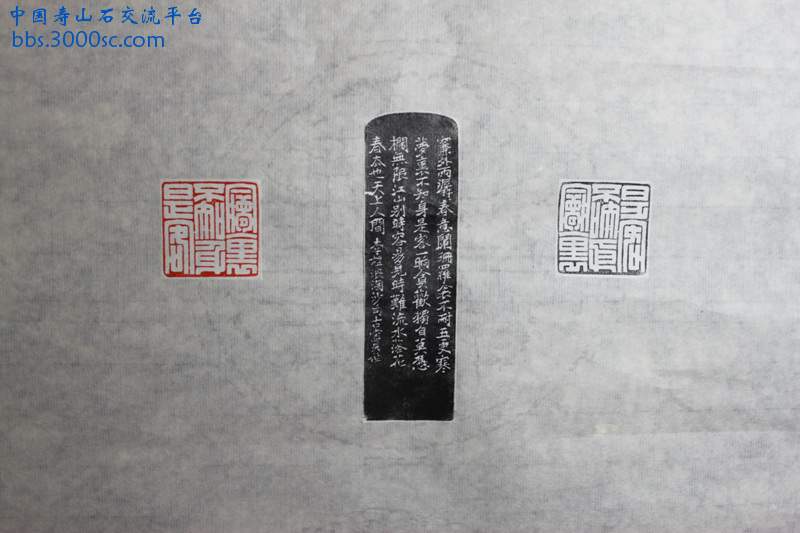 中国寿山石交流平台
bbs.3000sc.com
簾外雨潺潺春意闌珊羅衾不耐五更寒
夢裏不知身是客一晌貪歡獨自莫憑
欄無限江山别時容易見時難流水落花
春去也天上人間 李煜浪淘沙
夢裏不知身是客
夢裏不知身是客